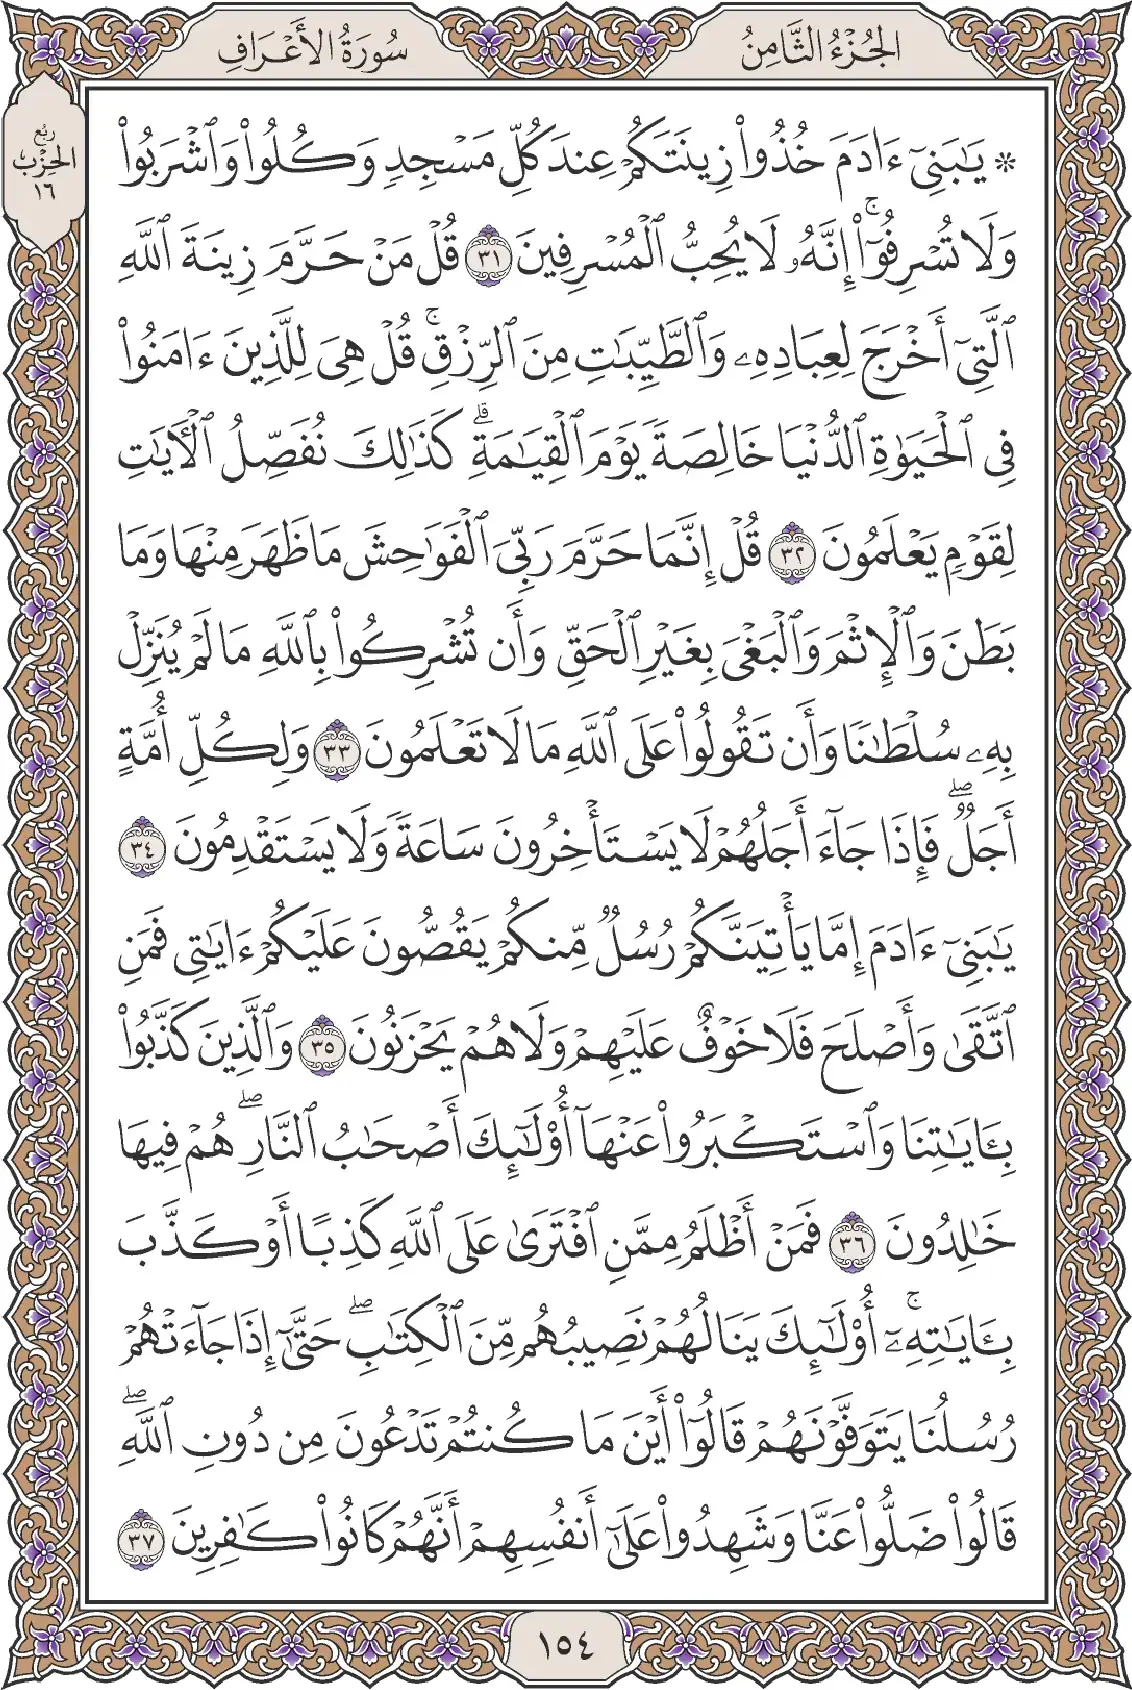 الجُزْءُ الثَّامِنُ
سُورَةُ الأَعْرَافِ
رُبُع
الحِزْبِ
١٦
۞ يَٰبَنِيٓ ءَادَمَ خُذُواْ زِينَتَكُمۡ عِندَ كُلِّ مَسۡجِدٖ وَكُلُواْ وَٱشۡرَبُواْ
وَلَا تُسۡرِفُوٓاْۚ إِنَّهُۥ لَا يُحِبُّ ٱلۡمُسۡرِفِينَ ٣١ قُلۡ مَنۡ حَرَّمَ زِينَةَ ٱللَّهِ
ٱلَّتِيٓ أَخۡرَجَ لِعِبَادِهِۦ وَٱلطَّيِّبَٰتِ مِنَ ٱلرِّزۡقِۚ قُلۡ هِيَ لِلَّذِينَ ءَامَنُواْ
فِي ٱلۡحَيَوٰةِ ٱلدُّنۡيَا خَالِصَةٗ يَوۡمَ ٱلۡقِيَٰمَةِۗ كَذَٰلِكَ نُفَصِّلُ ٱلۡأٓيَٰتِ
لِقَوۡمٖ يَعۡلَمُونَ ٣٢ قُلۡ إِنَّمَا حَرَّمَ رَبِّيَ ٱلۡفَوَٰحِشَ مَا ظَهَرَ مِنۡهَا وَمَا
بَطَنَ وَٱلۡإِثۡمَ وَٱلۡبَغۡيَ بِغَيۡرِ ٱلۡحَقِّ وَأَن تُشۡرِكُواْ بِٱللَّهِ مَا لَمۡ يُنَزِّلۡ
بِهِۦ سُلۡطَٰنٗا وَأَن تَقُولُواْ عَلَى ٱللَّهِ مَا لَا تَعۡلَمُونَ ٣٣ وَلِكُلِّ أُمَّةٍ
أَجَلٞۖ فَإِذَا جَآءَ أَجَلُهُمۡ لَا يَسۡتَأۡخِرُونَ سَاعَةٗ وَلَا يَسۡتَقۡدِمُونَ ٣٤
يَٰبَنِيٓ ءَادَمَ إِمَّا يَأۡتِيَنَّكُمۡ رُسُلٞ مِّنكُمۡ يَقُصُّونَ عَلَيۡكُمۡ ءَايَٰتِي فَمَنِ
ٱتَّقَىٰ وَأَصۡلَحَ فَلَا خَوۡفٌ عَلَيۡهِمۡ وَلَا هُمۡ يَحۡزَنُونَ ٣٥ وَٱلَّذِينَ كَذَّبُواْ
بِـَٔايَٰتِنَا وَٱسۡتَكۡبَرُواْ عَنۡهَآ أُوْلَٰٓئِكَ أَصۡحَٰبُ ٱلنَّارِۖ هُمۡ فِيهَا
خَٰلِدُونَ ٣٦ فَمَنۡ أَظۡلَمُ مِمَّنِ ٱفۡتَرَىٰ عَلَى ٱللَّهِ كَذِبًا أَوۡ كَذَّبَ
بِـَٔايَٰتِهِۦٓۚ أُوْلَٰٓئِكَ يَنَالُهُمۡ نَصِيبُهُم مِّنَ ٱلۡكِتَٰبِۖ حَتَّىٰٓ إِذَا جَآءَتۡهُمۡ
رُسُلُنَا يَتَوَفَّوۡنَهُمۡ قَالُوٓاْ أَيۡنَ مَا كُنتُمۡ تَدۡعُونَ مِن دُونِ ٱللَّهِۖ
قَالُواْ ضَلُّواْ عَنَّا وَشَهِدُواْ عَلَىٰٓ أَنفُسِهِمۡ أَنَّهُمۡ كَانُواْ كَٰفِرِينَ ٣٧
١٥٤